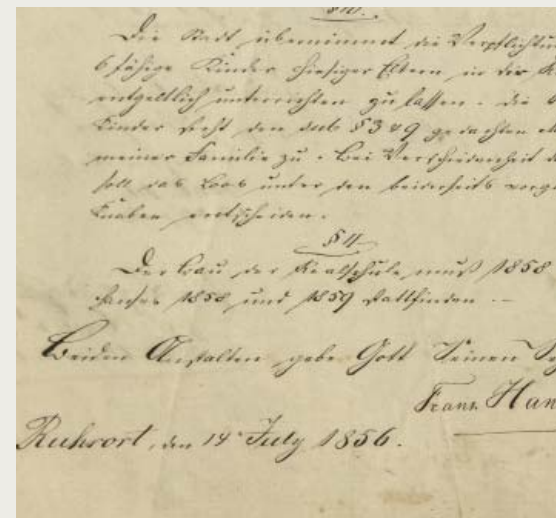 §10.
Die Stadt übernimmt die Verpflichtun
6 fähige Kinder hiesiger Eltern in der R
entgeltlich unterrichten zu lassen. die
Kinder steht den sub § 3 & 9 gedachten
meiner Familie zu. Bei Verschiedenheit d
soll das Loos unter den beiderseits vorg
Knaben entscheiden.
§11.
Der Bau der Realschule muß 1858
1858 und 1859 stattfinden.
Beiden Anstalten gebe Gott Seinen Se
Franz Han
Ruhrort, den 14 July 1856.